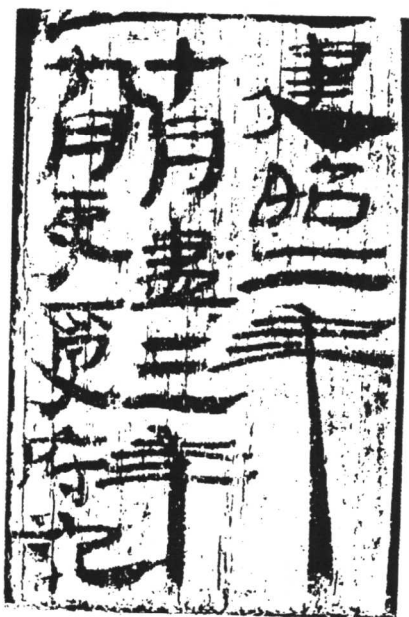 更始二年
十月盡三年
九月吏受府記